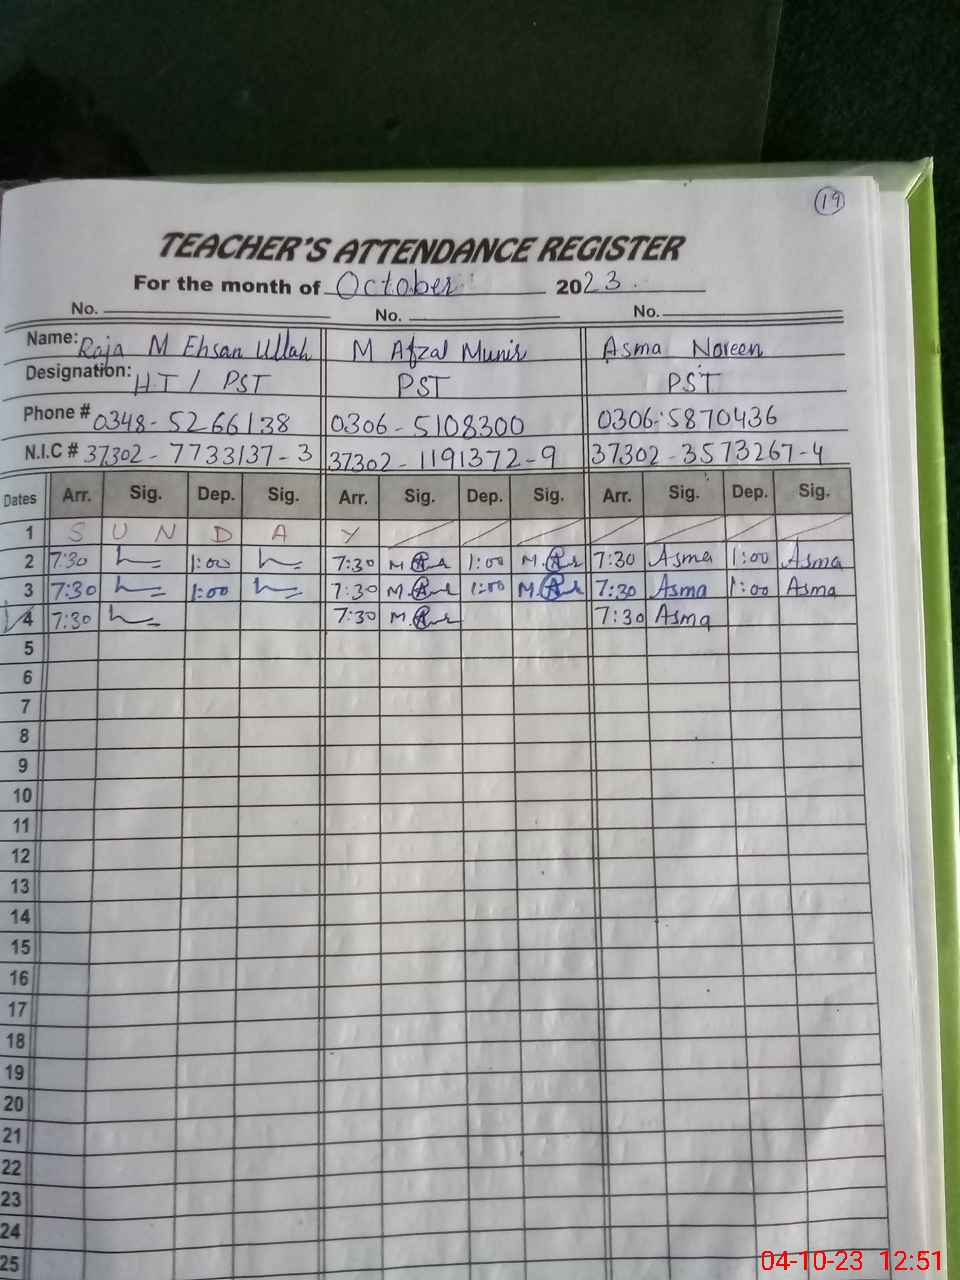 19
TEACHER'S ATTENDANCE REGISTER
For the month of October 2023.
No. No. No.
Name: Raja M Ehsan Ullah M Afzal Munir Asma Noreen
Designation: H.T / PST PST PST
Phone # 0348-5266138 0306-5108300 0306-5870436
N.I.C # 37302-7733137-3 37302-1191372-9 37302-3573267-4
Dates Arr. Sig. Dep. Sig. Arr. Sig. Dep. Sig. Arr. Sig. Dep. Sig.
1 S U N D A Y
2 7:30 1:00 7:30 1:00 7:30 Asma 1:00 Asma
3 7:30 1:00 7:30 1:00 7:30 Asma 1:00 Asma
4 7:30 7:30 7:30 Asma
5
6
7
8
9
10
11
12
13
14
15
16
17
18
19
20
21
22
23
24
25
04-10-23 12:51